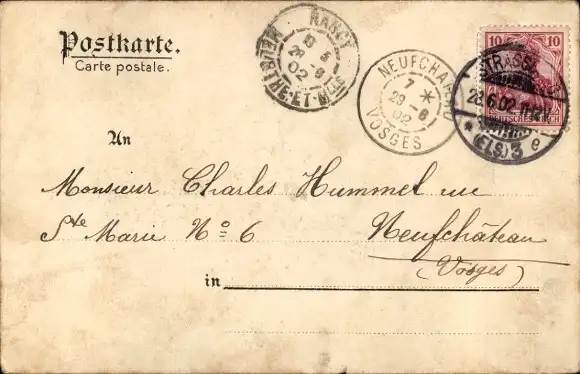 Postkarte.
Carte postale.
NANCY
29 - 6
02
MEURTHE-ET-MLLE
NEUFCHATEAU
7 *
29 - 6
02
VOSGES
10 10
STRASSBURG
28.6.02
* (ELS.) 3 e
An
Monsieur Charles Hummel rue
Ste Marie No 6 Neufchâteau
(Vosges)
in